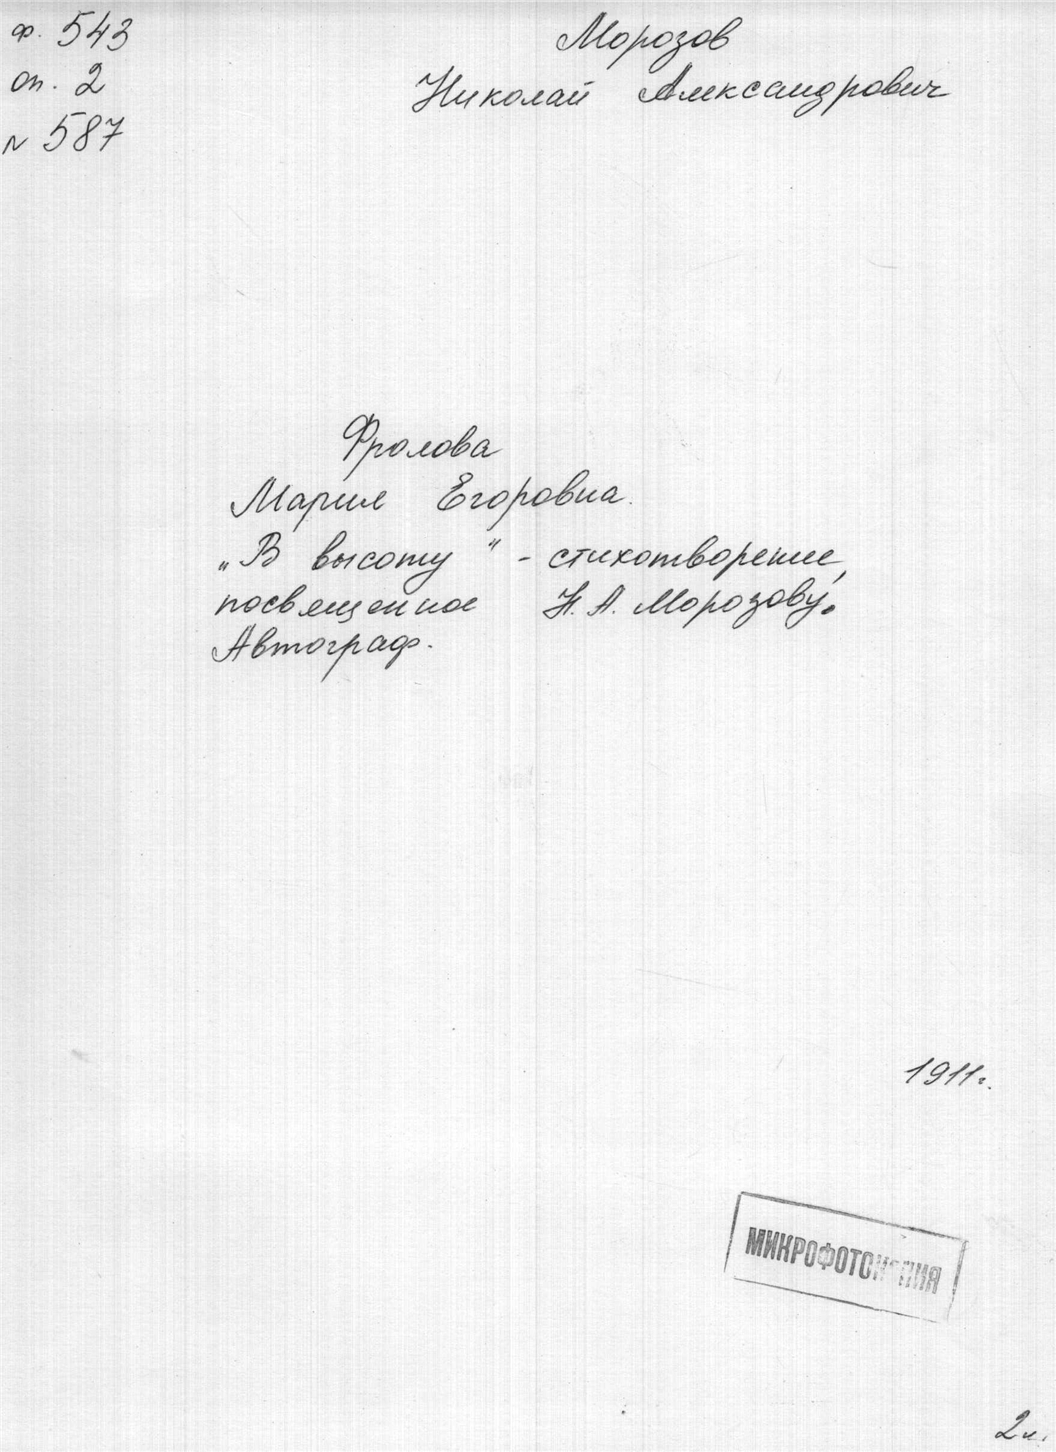 ф. 543
оп. 2
N 587
Морозов
Николай Александрович
Фролова
Мария Егоровна.
„В высоту" - стихотворение,
посвященное Н. А. Морозову.
Автограф.
1911г.
МИКРОФОТОКОПИЯ
2л.